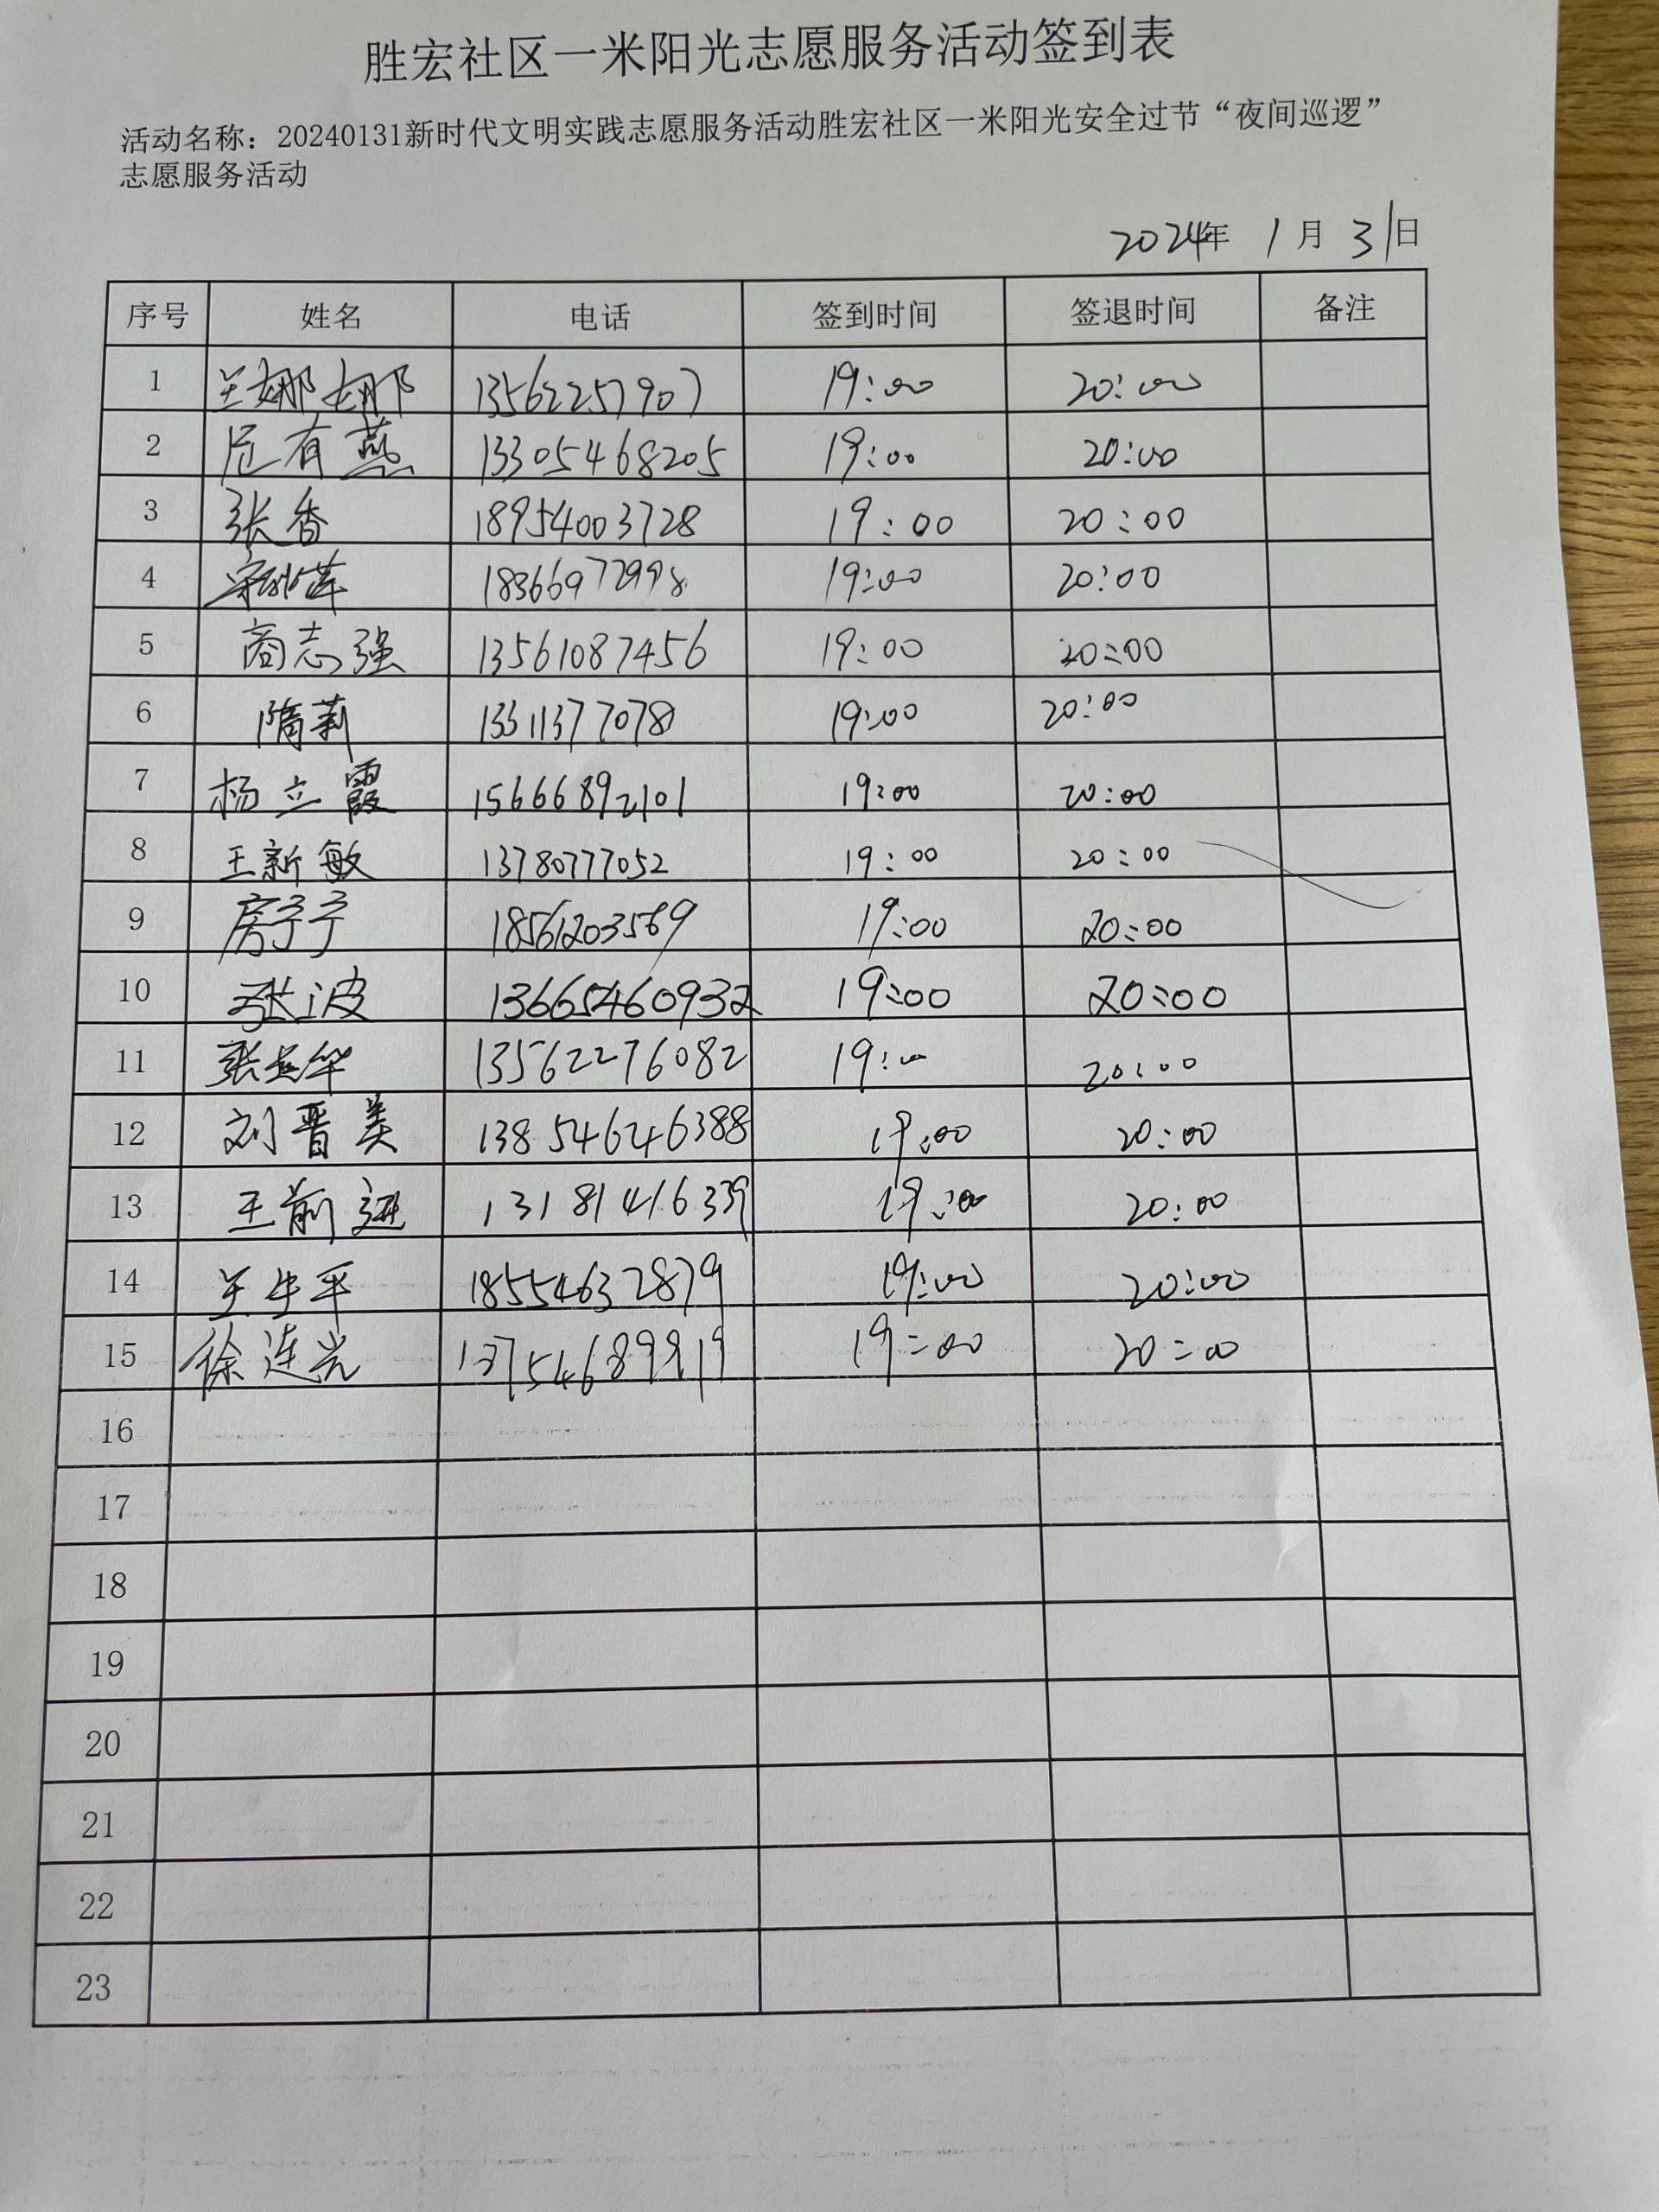 胜宏社区一米阳光志愿服务活动签到表
活动名称：20240131新时代文明实践志愿服务活动胜宏社区一米阳光安全过节“夜间巡逻”
志愿服务活动
2024年 1月 31日
序号 姓名 电话 签到时间 签退时间 备注
1 王娜娜 13562257907 19:00 20:00
2 有燕 13305468205 19:00 20:00
3 张香 18954003728 19:00 20:00
4 19:00 20:00
5 商志强 13561087456 19:00 20:00
6 隋莉 13311377078 19:00 20:00
7 杨立霞 15666892101 19:00 20:00
8 王新敏 13780777052 19:00 20:00
9 房宁宁 18561203569 19:00 20:00
10 张波 13665460932 19:00 20:00
11 13562276082 19:00 20:00
12 刘晋美 13854646388 19:00 20:00
13 王前进 13181416339 19:00 20:00
14 18554632879 19:00 20:00
15 徐连光 19:00 20:00
16
17
18
19
20
21
22
23